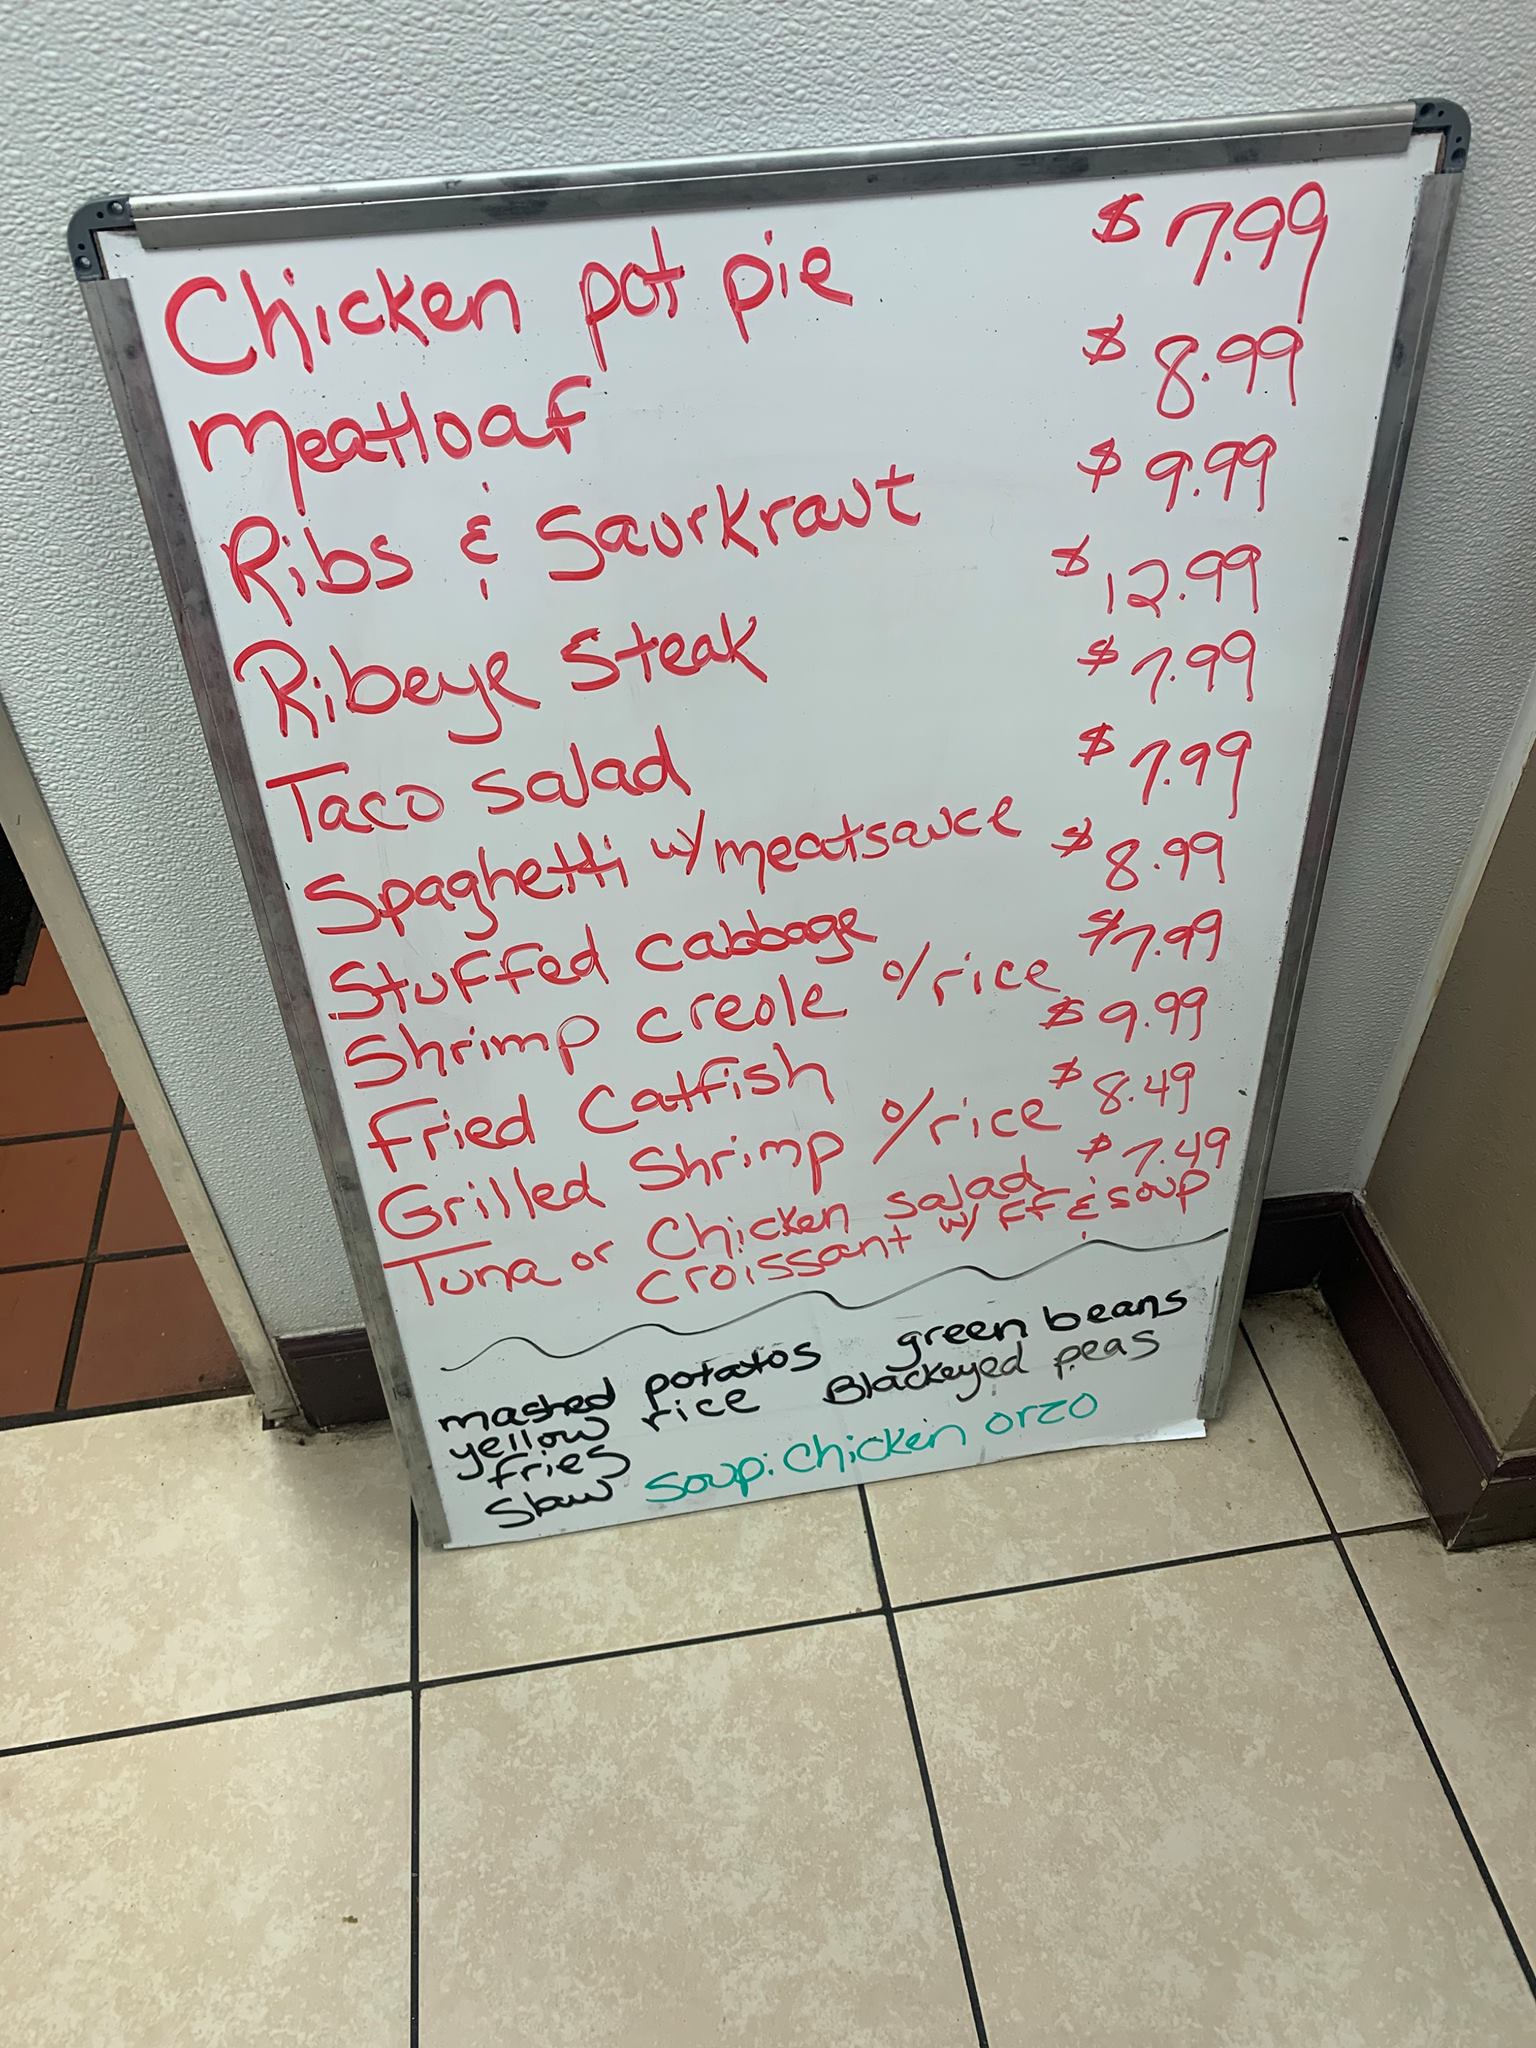 Chicken pot pie $7.99
Meatloaf $8.99
Ribs & Saurkraut $9.99
Ribeye Steak $12.99
Taco Salad $7.99
Spaghetti w/meatsauce $7.99
Stuffed cabbage $8.99
Shrimp creole o/rice $7.99
Fried Catfish $9.99
Grilled Shrimp o/rice $8.49
Tuna or Chicken salad $7.49
croissant w/ FF & soup
mashed potatos green beans
yellow rice Blackeyed peas
fries
Slaw Soup: Chicken orzo